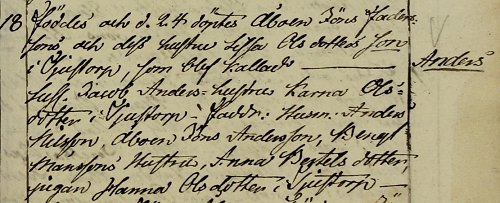 18 Föddes och d. 24 döptes Åboen Jöns Faders-
sons, och dess hustru Sissa Ols dotters son
i Sjustorp, som blef kallad — Anders
Susc. Jacob Anders- hustrus Karna Ols-
dotter i Sjustorp - Faddr: Husm. Anders
Nilsson, Åboen Jöns Andersson, Bengt
Månssons Hustru, Anna Bertels dotter,
pigan Hanna Ols dotter i Sjustorp —